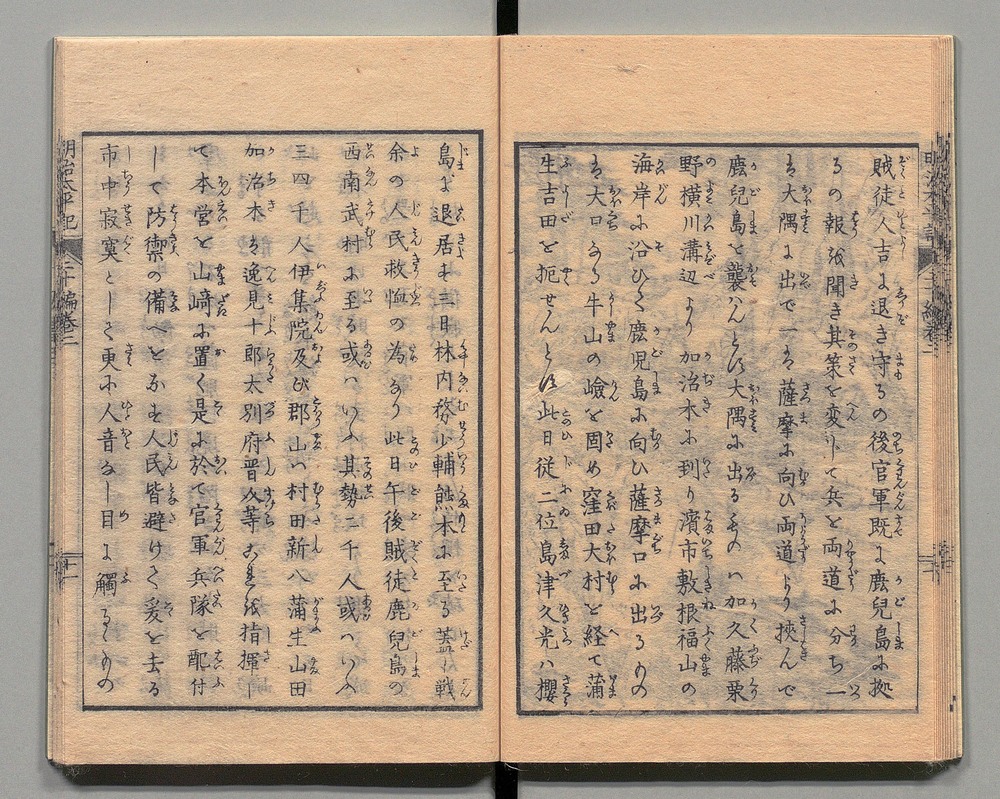 賊徒人吉に退き守るの後官軍既に鹿兒島に拠
るの報を聞き其策を変じて兵を両道に分ち一
は大隅に出で一は薩摩に向ひ両道より挾んで
鹿兒島を襲はんとす大隅に出るものハ加久藤栗
野横川溝辺より加治木に到り濱市敷根福山の
海岸に沿ひて鹿児島に向ひ薩摩口に出るもの
は大口なる牛山の嶮を固め窪田大村を経て蒲
生吉田を扼せんとす此日従二位島津久光ハ櫻
島に退居す三日林内務少輔熊本に至る蓋し戦
余の人民救恤の為なり此日午後賊徒鹿兒島の
西南武村に至る或ハいふ其勢二千人或ハいふ
三四千人伊集院及び郡山ハ村田新八蒲生山田
加治木は逸見十郎太別府晋介等これを指揮し
て本営を山﨑に置く是に於て官軍兵隊を配付
して防禦の備へをなす人民皆避けて爰を去る
市中寂寞として更に人音なし目に觸るもの
明治太平記
二十編巻二
十一